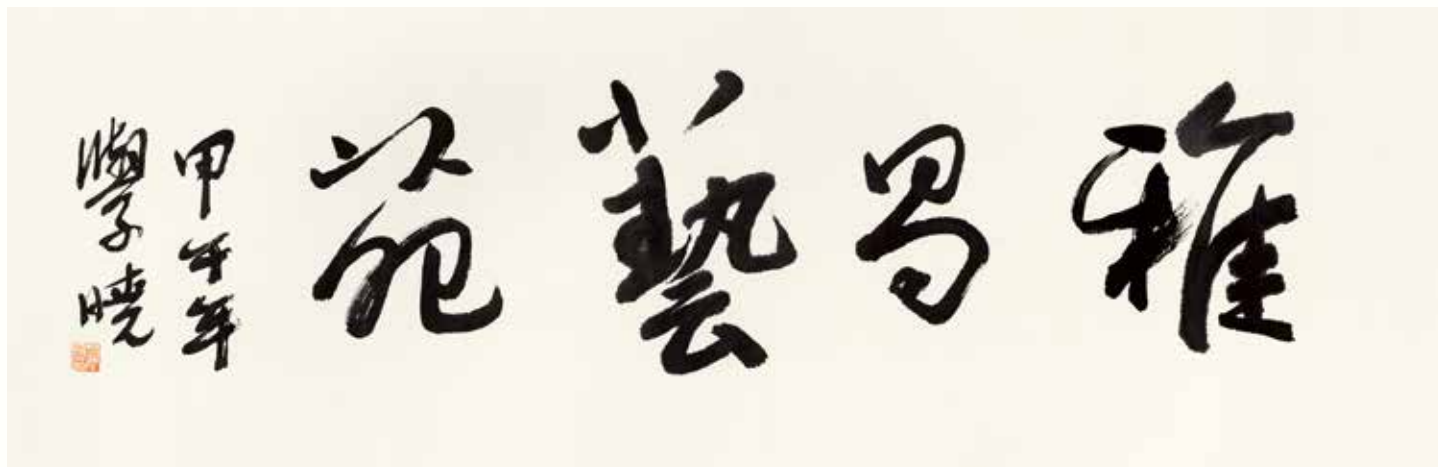 雅昌藝苑
甲午年
學曉